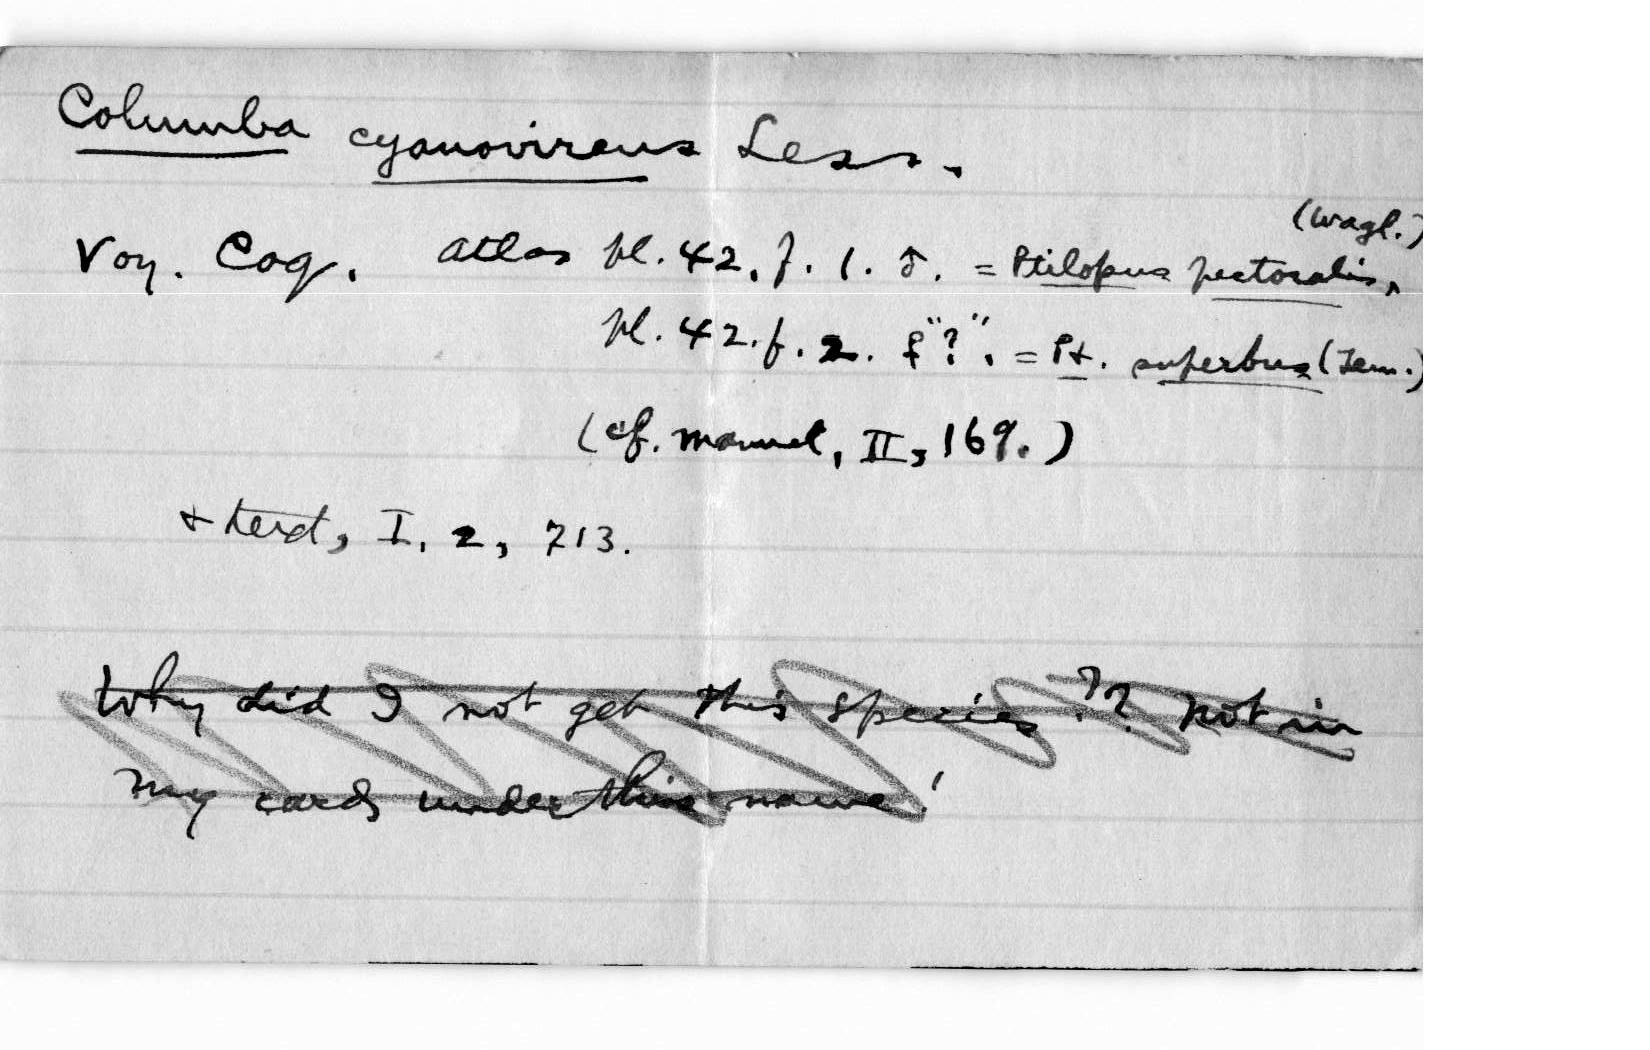 Columba cyanovirens Less.
(Wagl.)
Voy. Coq. Atlas pl. 42, f. 1. ♂. = Ptilopus pectoralis,
pl. 42. f. 2. f "?". = Pt. superbus (Tem.)
(cf. Manuel, II, 169.)
+ text, I, 2, 713.
Why did I not get this species?? Not in
my cards under this name!